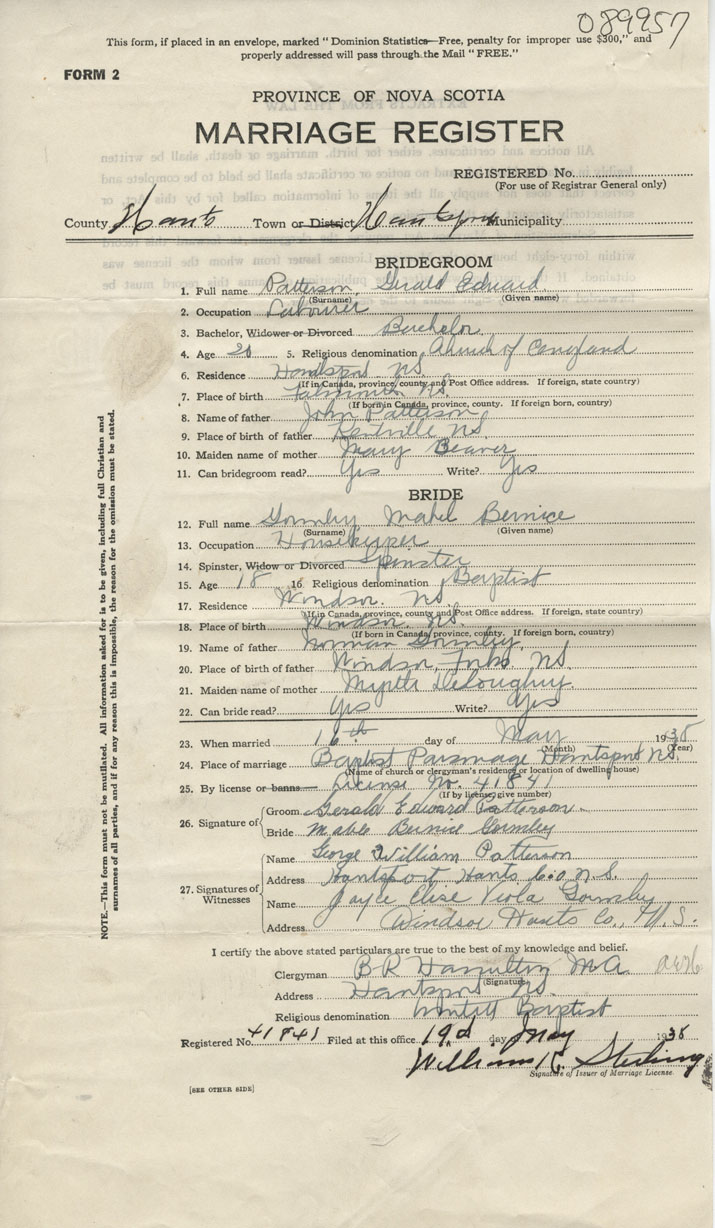 089957
This form, if placed in an envelope, marked "Dominion Statistics—Free, penalty for improper use $300," and
properly addressed will pass through the Mail "FREE."
FORM 2
PROVINCE OF NOVA SCOTIA
MARRIAGE REGISTER
REGISTERED No.
(For use of Registrar General only)
County Hants Town or District Hantsport Municipality
BRIDEGROOM
1. Full name Patterson, Gerald Edward
(Surname) (Given name)
2. Occupation Labourer
3. Bachelor, Widower or Divorced Bachelor
4. Age 20 5. Religious denomination Church of England
6. Residence Hantsport NS
(If in Canada, province, county and Post Office address. If foreign, state country)
7. Place of birth Falmouth NS.
(If born in Canada, province, county. If foreign born, country)
8. Name of father John Patterson
9. Place of birth of father Kentville NS.
10. Maiden name of mother Mary Beaver
11. Can bridegroom read? Yes Write? Yes
BRIDE
12. Full name Gormley Mabel Bernice
(Surname) (Given name)
13. Occupation Housekeeper
14. Spinster, Widow or Divorced Spinster
15. Age 18 16. Religious denomination Baptist
17. Residence Windsor. NS
(If in Canada, province, county and Post Office address. If foreign, state country)
18. Place of birth Windsor. NS.
(If born in Canada, province, county. If foreign born, country)
19. Name of father Norman Gormley.
20. Place of birth of father Windsor, Forks NS
21. Maiden name of mother Myrtle DeLoughry
22. Can bride read? Yes Write? Yes
23. When married 16th day of May 1938
(Month) (Year)
24. Place of marriage Baptist Parsonage Hantsport NS.
(Name of church or clergyman's residence or location of dwelling house)
25. By license or banns License No. 41841
(If by license, give number)
26. Signature of Groom Gerald Edward Patterson.
Bride Mable Bernice Gormley
27. Signatures of Witnesses
Name George William Patterson
Address Hantsport Hants Co. N.S.
Name Elise Viola Gormley
Address Windsor Hants Co., N.S.
I certify the above stated particulars are true to the best of my knowledge and belief.
Clergyman B-R Hamilton M.A.
(Signature)
Address Hantsport NS.
Religious denomination Baptist
Registered No. 41841 Filed at this office 19 day May 1938
William Sterling
Signature of Issuer of Marriage License
[SEE OTHER SIDE]
NOTE.—This form must not be mutilated. All information asked for is to be given, including full Christian and
surnames of all parties, and if for any reason this is impossible, the reason for the omission must be stated.